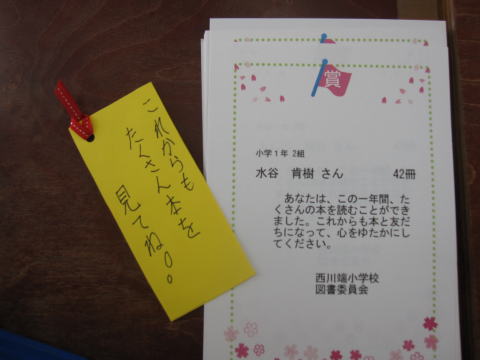 これからも
たくさん本を
見てね。。
賞
小学1年 2組
水谷 肯樹 さん 42冊
あなたは、この一年間、た
くさんの本を読むことができ
ました。これからも本と友だ
ちになって、心をゆたかにし
てください。
西川端小学校
図書委員会